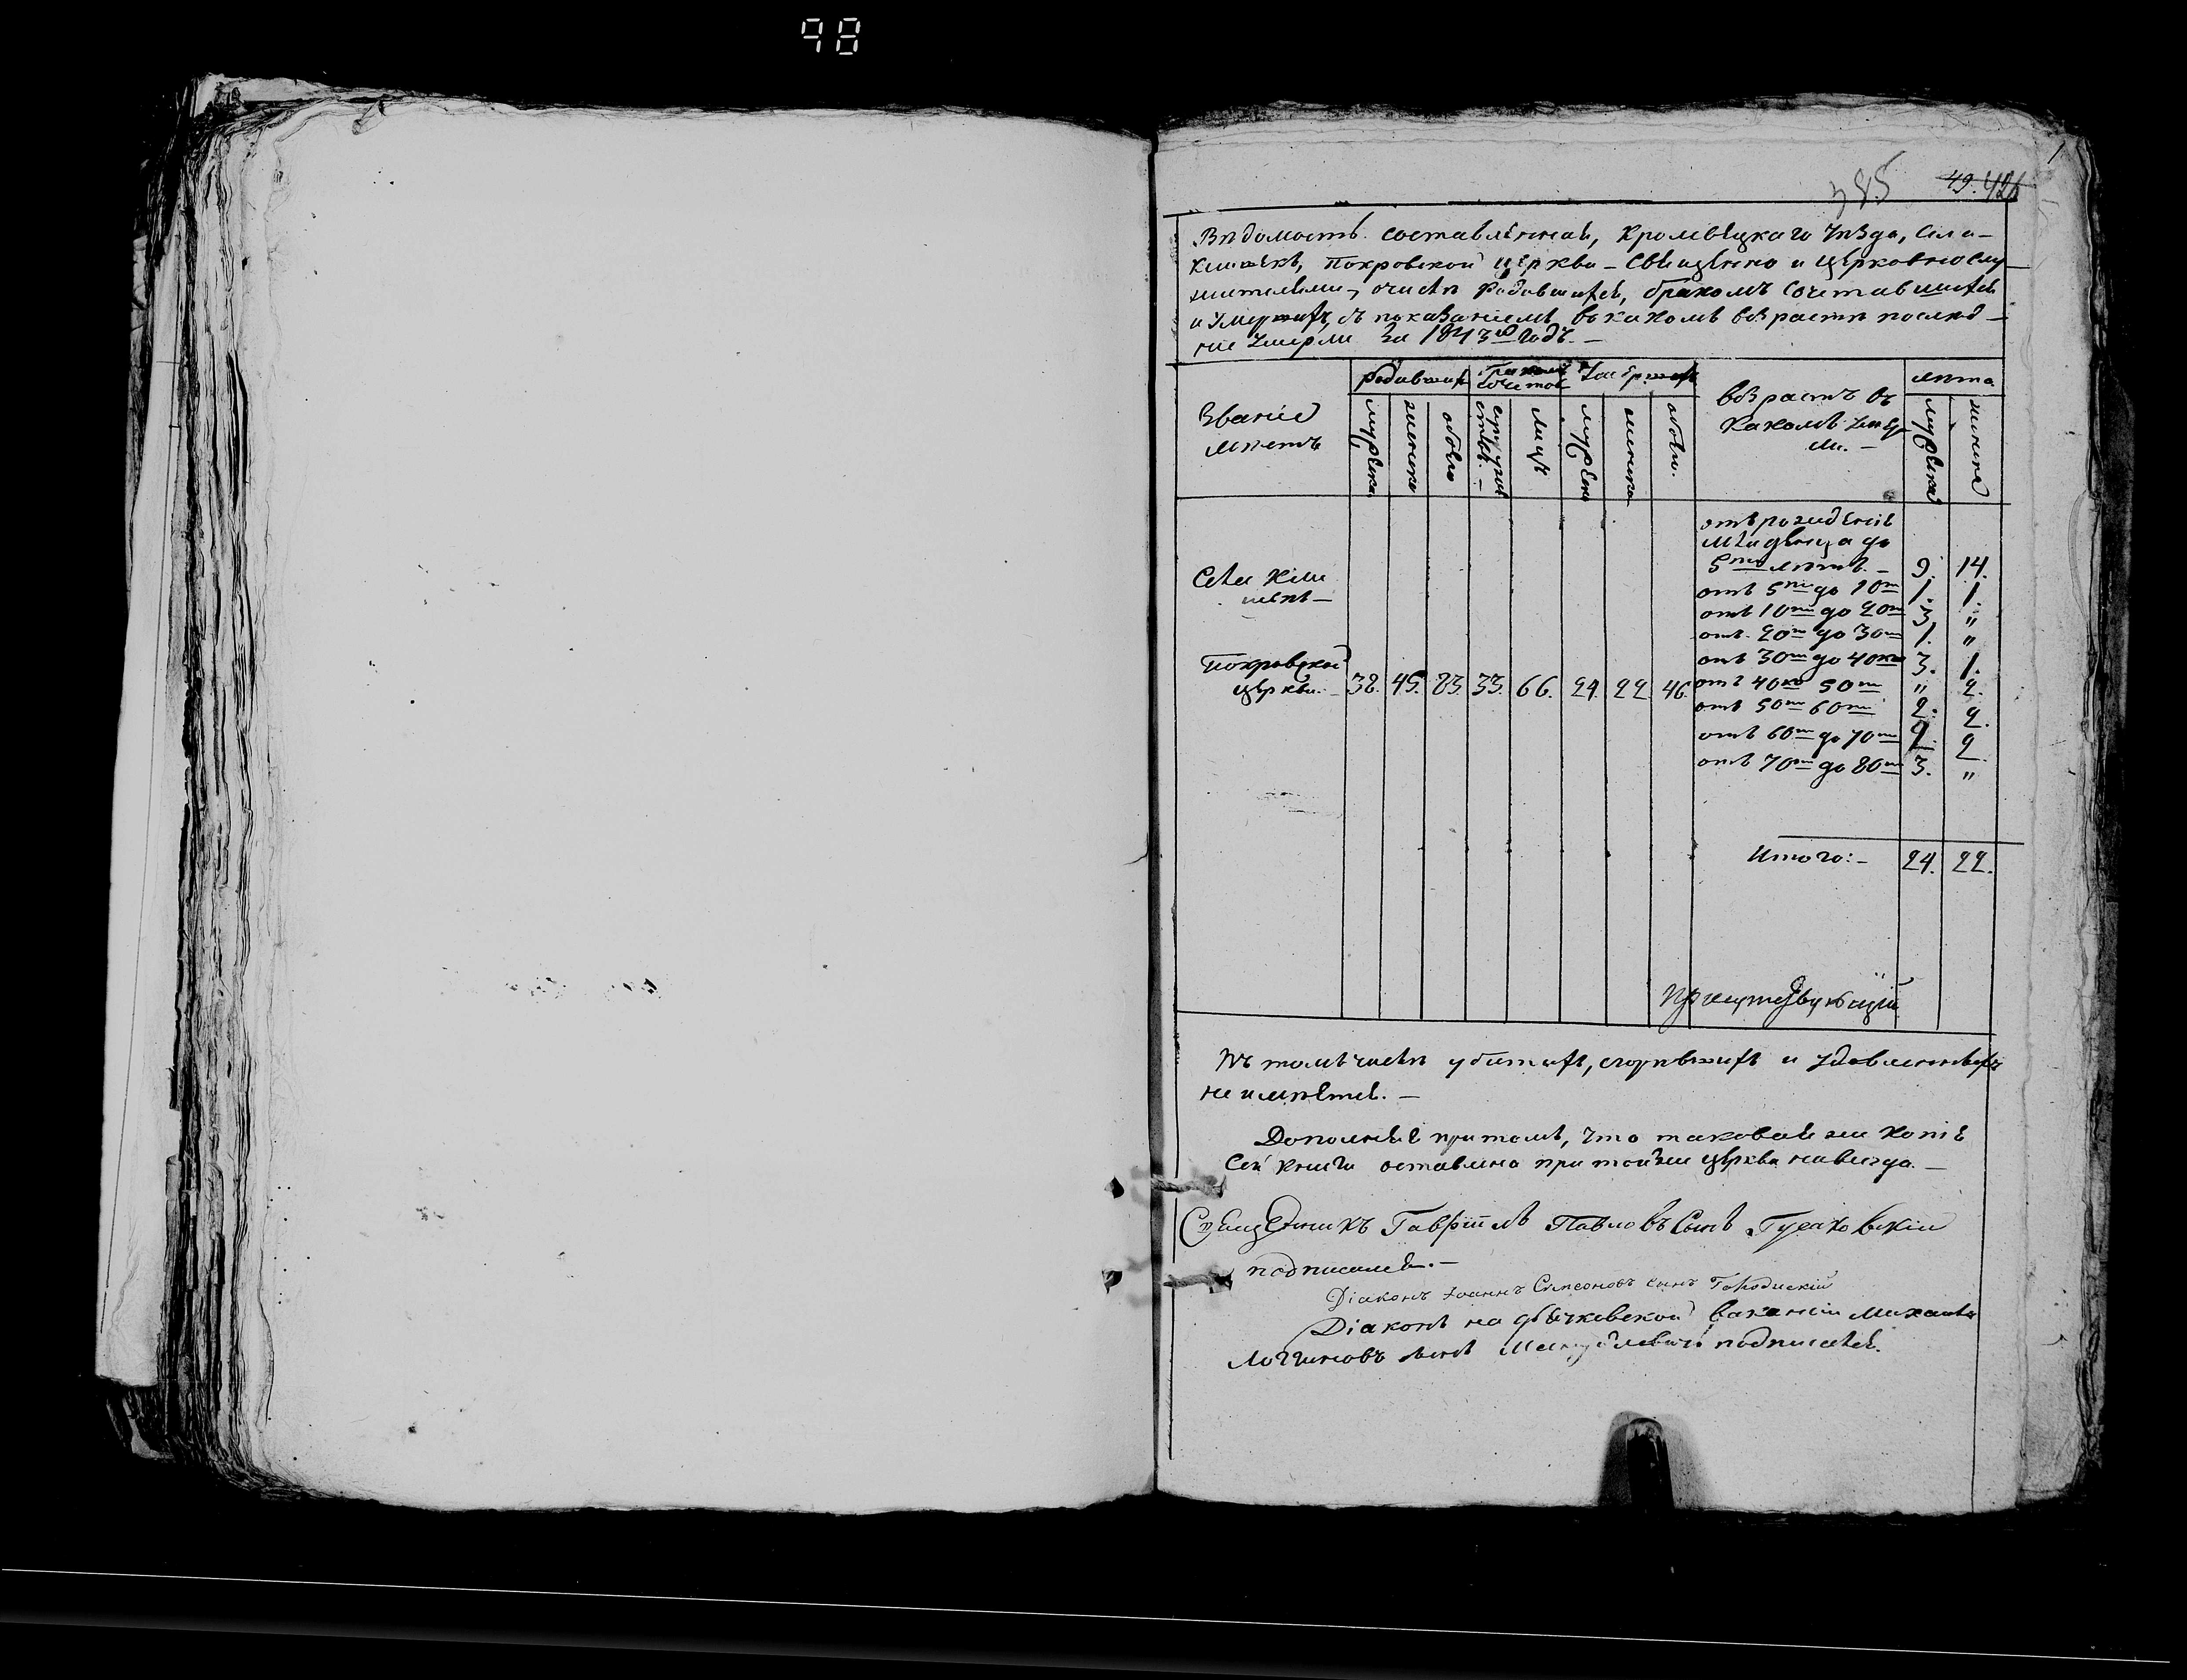 98
1
385 49. 426
Вѣдомость составленная, Кролевецкаго Уѣзда, Села
Покровской церкви Священно и церковнослу
жителями, о числѣ родившихся, бракомъ сочетавшихся
и Умершихъ, съ показаніемъ въ какомъ возрастѣ послѣд
ніе Умерли За 1843й годъ. —
Званіе мѣстъ
родивших
мужеска
женска
обоего
бракомъ сочетав
супружествъ. —
лицъ
Умерших
мужеска
женска
обоего.
возрастъ въ
какомъ умер
ли. —
лѣта.
мужеска
женска
Села
Покровской
церкви. — 38. 45. 83. 33. 66. 24. 22 46.
отъ рожденія
младенца до
5ти лѣтъ. — 9. 14.
отъ 5ти до 10ти 1. 1.
отъ 10ти до 20ти 3. "
отъ 20ти до 30ти 1. "
отъ 30ти до 40ка 3. 1.
отъ 40ка 50ти " 2.
отъ 50ти 60ти 2. 2.
отъ 60ти до 70ти 2. 2.
отъ 70ти до 80ти 3. "
Итого: — 24. 22.
Присутствующій
Въ томъ числѣ убитыхъ, сгорѣвшихъ и удавленныхъ
не имѣется. —
Дополняя притомъ, что таковая же Копія
Сей Книги оставлена при той же церкви навсегда. —
Священникъ Гавріилъ Павловъ Сынъ
подписался. —
Діаконъ Іоаннъ Симеоновъ сынъ Городискій
Діаконъ на дьячковской ваканціи Михаилъ
Логгиновъ сынъ подписался.